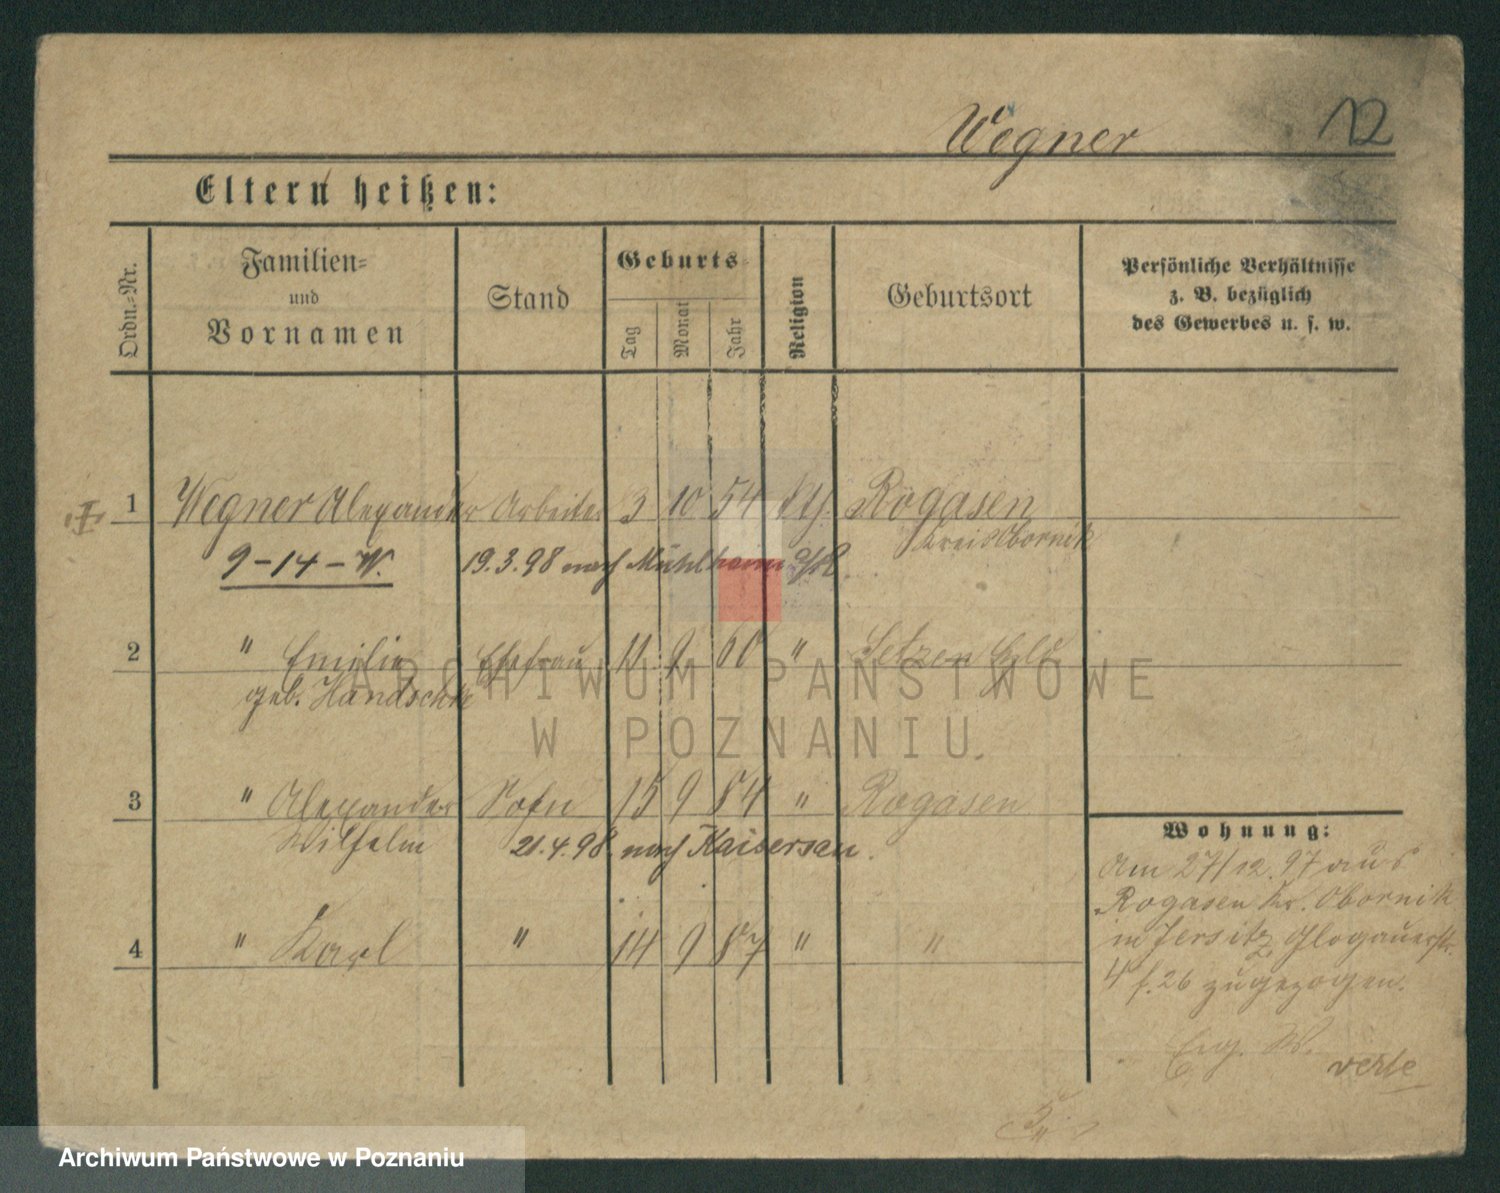 Wegner 12
Eltern heißen:
Ordn.-Nr.
Familien-
und
Vornamen
Stand
Geburts-
Tag
Monat
Jahr
Religion
Geburtsort
Persönliche Verhältnisse
z. B. bezüglich
des Gewerbes u. s. w.
1 Wegner Alexander Arbeiter 3 10 54 Rogasen
Kreis Obornik
9-14-W. 19.3.98 nach Mühlheim a/R.
2 " Emilie Ehefrau 11 9 60 "
geb. Handschke
3 " Alexander Sohn 15 9 84 " Rogasen
Wilhelm
21.4.98. nach Kaisersau.
4 " Karl " 14 9 87 " "
Wohnung:
Am 27/12.97 aus
Rogasen Kr. Obornik
in Jersitz Glogauerstr.
4 f. 26 zugezogen.
verte
ARCHIWUM PAŃSTWOWE
W POZNANIU
Archiwum Państwowe w Poznaniu